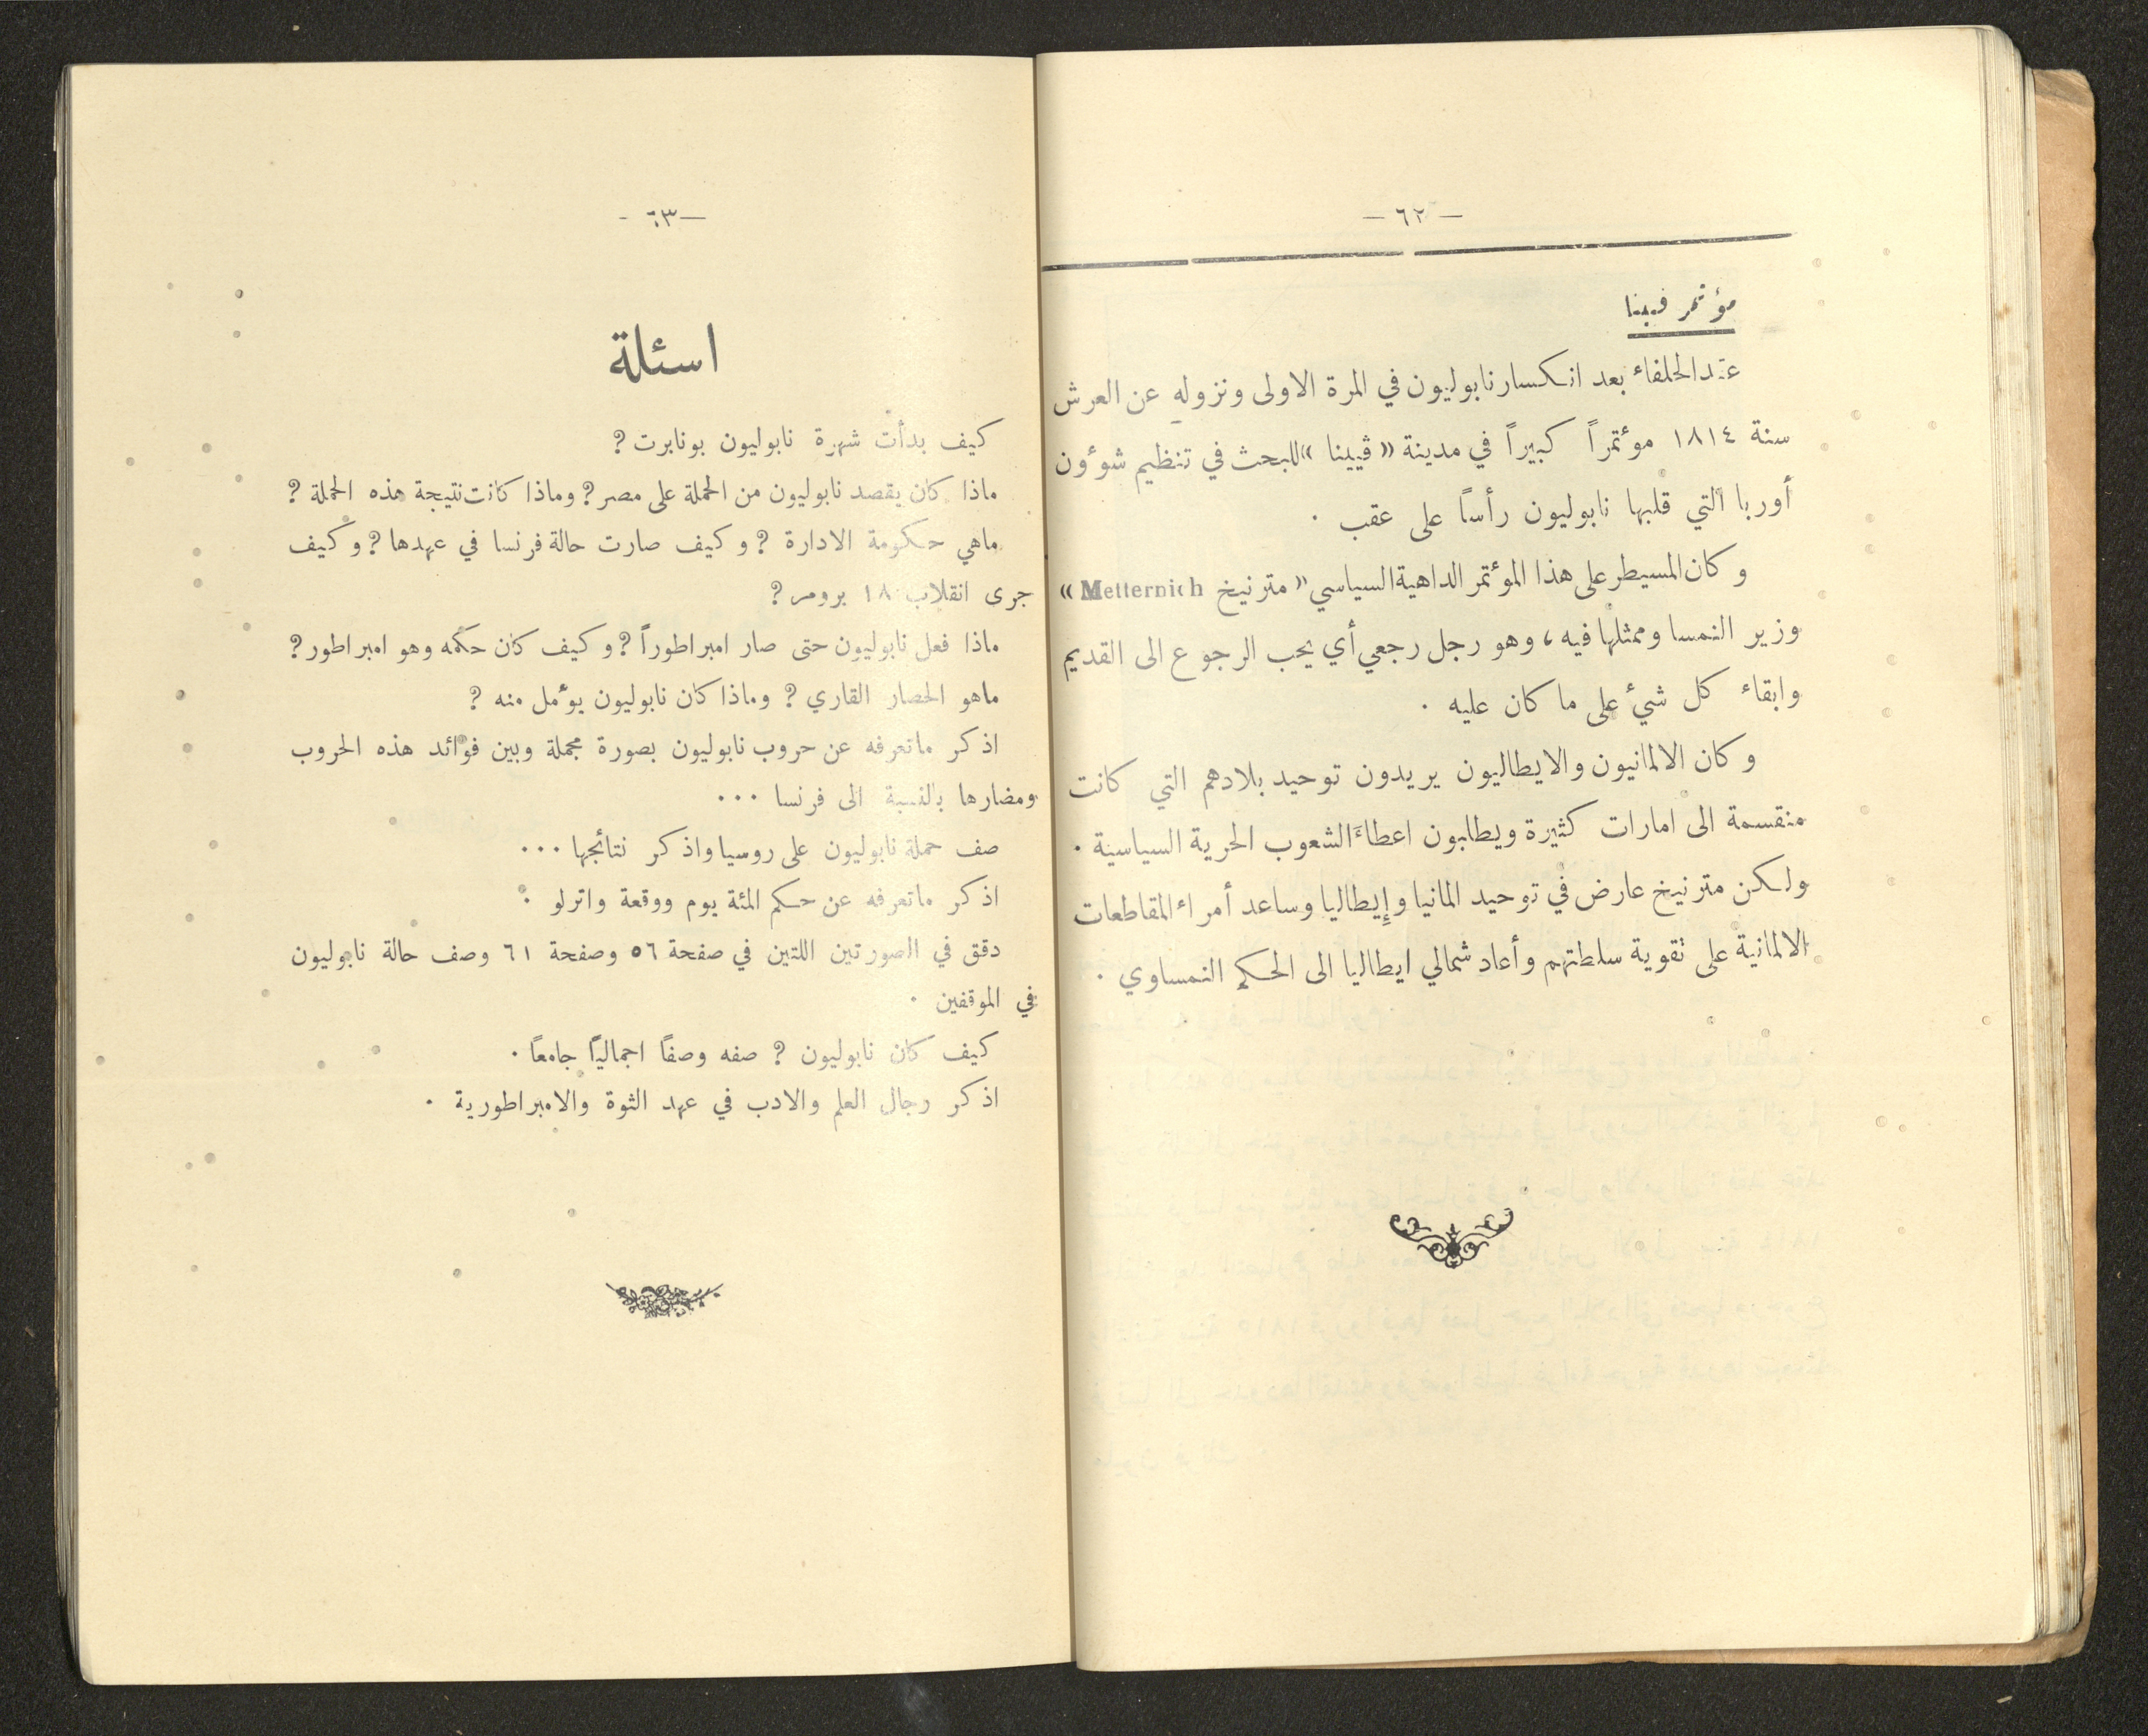 — ٦٢ —
مؤتمر فيينا
عقد الحلفاء بعد انكسار نابوليون في المرة الاولى ونزوله عن العرش
سنة ١٨١٤ موءتمراً كبيراً في مدينة « ڤيينا » للبحث في تنظيم شوءون
أوربا التي قلبها نابوليون رأساً على عقب .
وكان المسيطر على هذا الموءتمر الداهية السياسي « مترنيخ Metternich »
وزير النمسا وممثلها فيه ، وهو رجل رجعي أي يحب الرجوع الى القديم
وابقاء كل شيء على ما كان عليه .
وكان الالمانيون والايطاليون يريدون توحيد بلادهم التي كانت
منقسمة الى امارات كثيرة ويطلبون اعطاءَ الشعوب الحرية السياسية .
ولكن مترنيخ عارض في توحيد المانيا وإيطاليا وساعد أمراء المقاطعات
الالمانية على تقوية سلطتهم وأعاد شمالي ايطاليا الى الحكم النمساوي .
— ٦٣ -
اسئلة
كيف بدأت شهرة نابوليون بونابرت ؟
ماذا كان يقصد نابوليون من الحملة على مصر ؟ وماذا كانت نتيجة هذه الحملة ؟
ماهي حكومة الادارة ؟ وكيف صارت حالة فرنسا في عهدها ؟ وكيف
جرى انقلاب ١٨ برومر ؟
ماذا فعل نابوليون حتى صار امبراطوراً ؟ وكيف كان حكمه وهو امبراطور ؟
ماهو الحصار القاري ؟ وماذا كان نابوليون يوءمل منه ؟
اذكر ماتعرفه عن حروب نابوليون بصورة مجملة وبين فوائد هذه الحروب
ومضارها بالنسبة الى فرنسا ...
صف حملة نابوليون على روسيا واذكر نتائجها ...
اذكر ماتعرفه عن حكم المئة يوم ووقعة واترلو .
دقق في الصورتين اللتين في صفحة ٥٦ وصفحة ٦١ وصف حالة نابوليون
في الموقفين .
كيف كان نابوليون ؟ صفه وصفاً اجمالياً جامعاً .
اذكر رجال العلم والادب في عهد الثوة والامبراطورية .